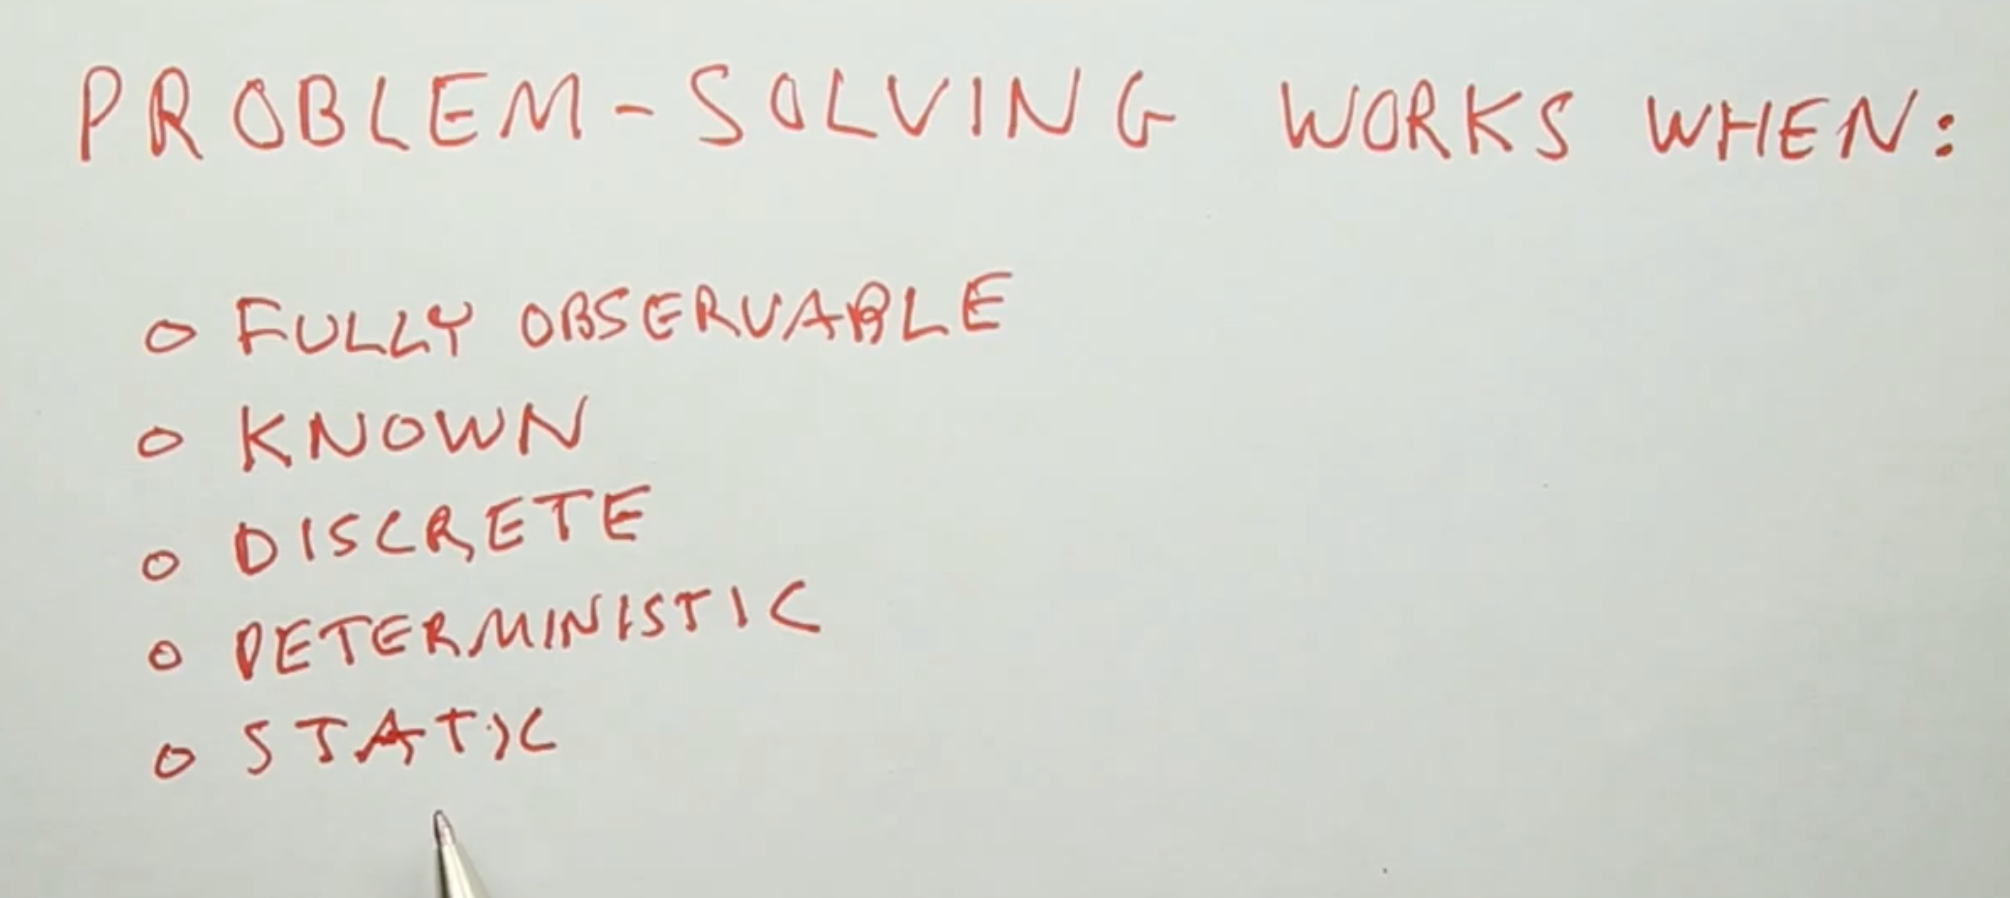 PROBLEM-SOLVING WORKS WHEN:
○ FULLY OBSERVABLE
○ KNOWN
○ DISCRETE
○ DETERMINISTIC
○ STATIC